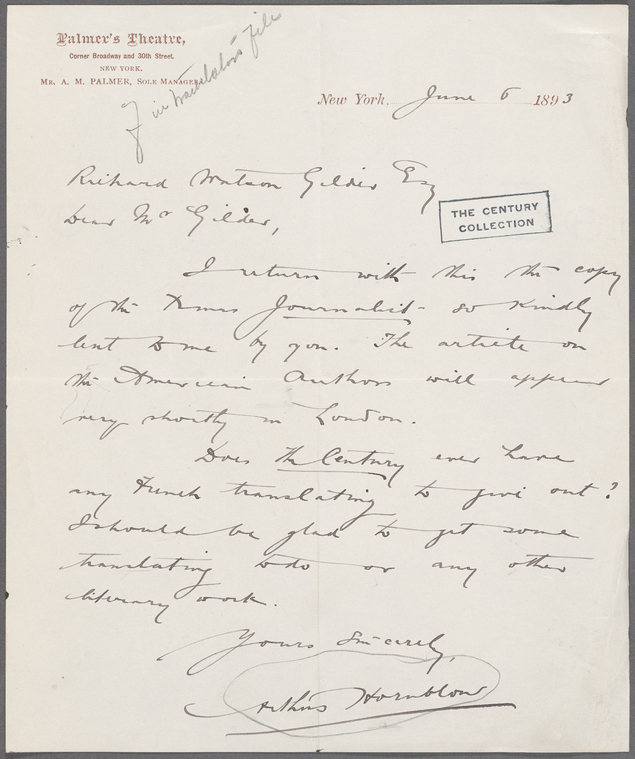 Palmer's Theatre,
Corner Broadway and 30th Street.
NEW YORK.
MR. A. M. PALMER, SOLE MANAGER
in translators file
New York, June 6 1893
Richard Watson Gilder Esq
Dear Mr Gilder,
THE CENTURY
COLLECTION
I return with this the copy
of the Journalist - so kindly
lent to me by you. The article on
the American Authors will appear
very shortly in London.
Does the Century ever have
any French translating to give out?
I should be glad to get some
translating to do or any other
literary work.
Yours Sincerely,
Arthur Hornblow